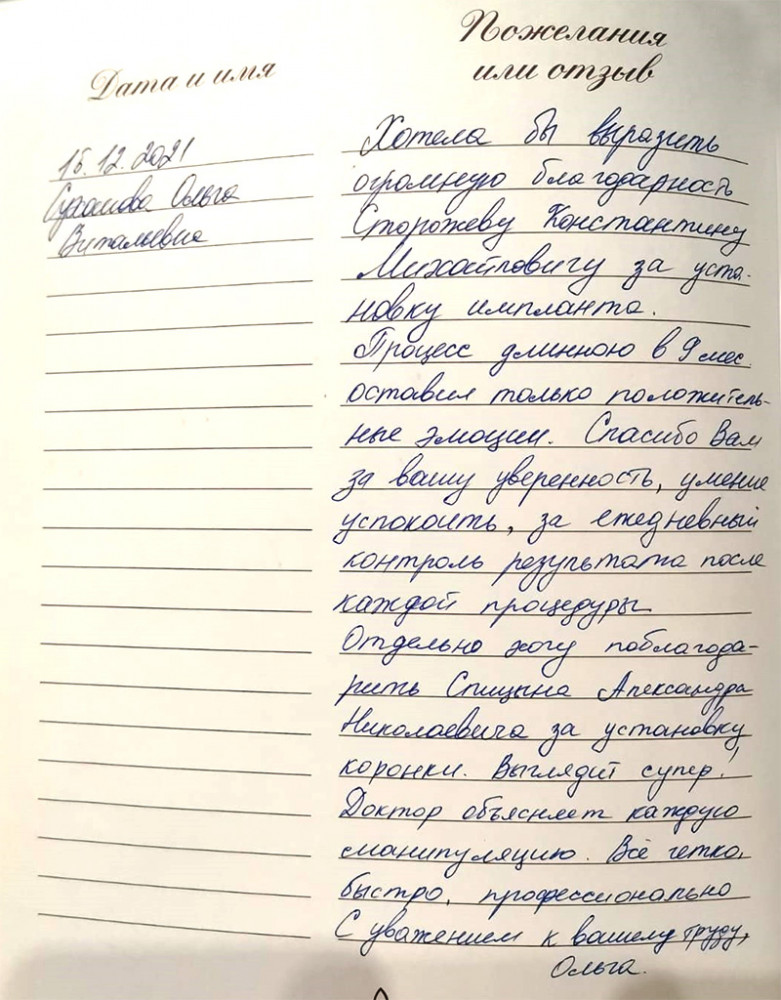 Дата и имя
Пожелания
или отзыв
15.12.2021
Ольга
Витальевна
Хотела бы выразить
огромную благодарность
Сторожеву Константину
Михайловичу за уста-
новку импланта.
Процесс длинною в 9 мес.
оставил только положитель-
ные эмоции. Спасибо Вам
за вашу уверенность, умение
успокоить, за ежедневный
контроль результата после
каждой процедуры
Отдельно хочу поблагода-
рить Спицына Александра
Николаевича за установку
коронки. Выглядит супер!
Доктор объясняет каждую
манипуляцию. Всё четко,
быстро, профессионально
С уважением к вашему труду,
Ольга.